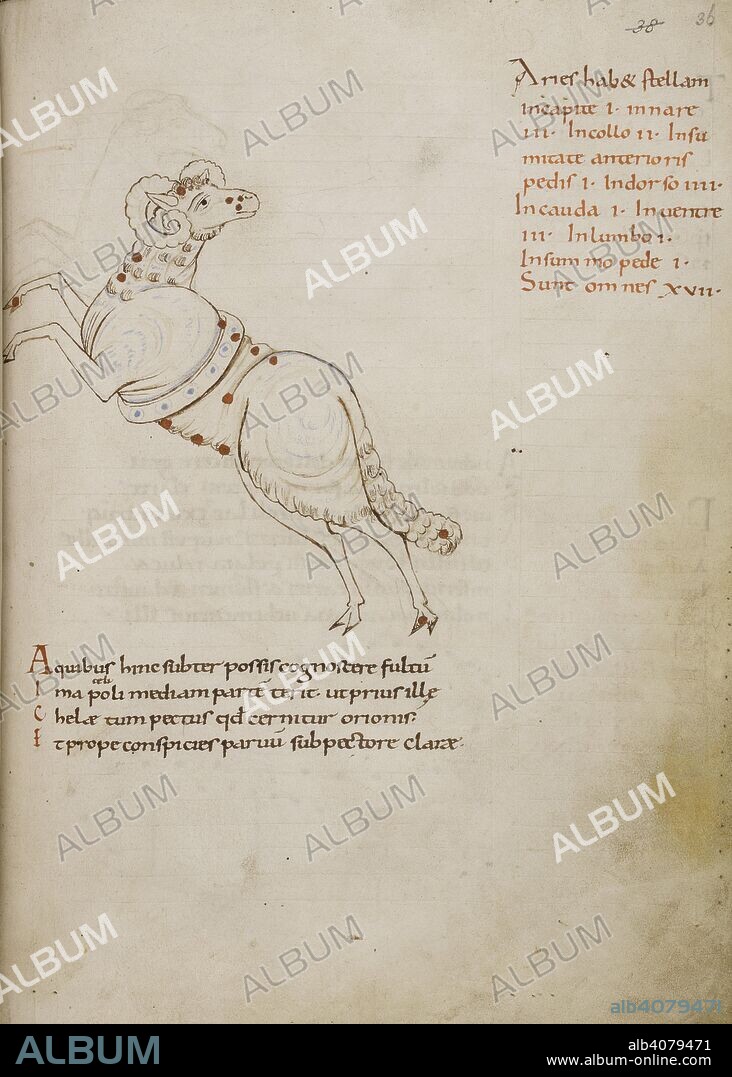 38 36
Aries hab& stellam
incapite ı· innare
ııı· Incollo ıı· Insu
mitate anterioris
pedis ı· Indorso ıııı·
Incauda ı· Inventre
ııı· Inlumbo ı·
Insummo pede ı·
Sunt omnes xvıı·
A quibus hinc subter possis cognoscere fultū
I ma poli mediam partē terit· ut prius illę
C helae tum pectus qd cernitur orionis·
E t prope conspicies parvū sub pectore clarae·
ALBUM
alb4079471
ALBUM
alb4079471
www.album-online.com